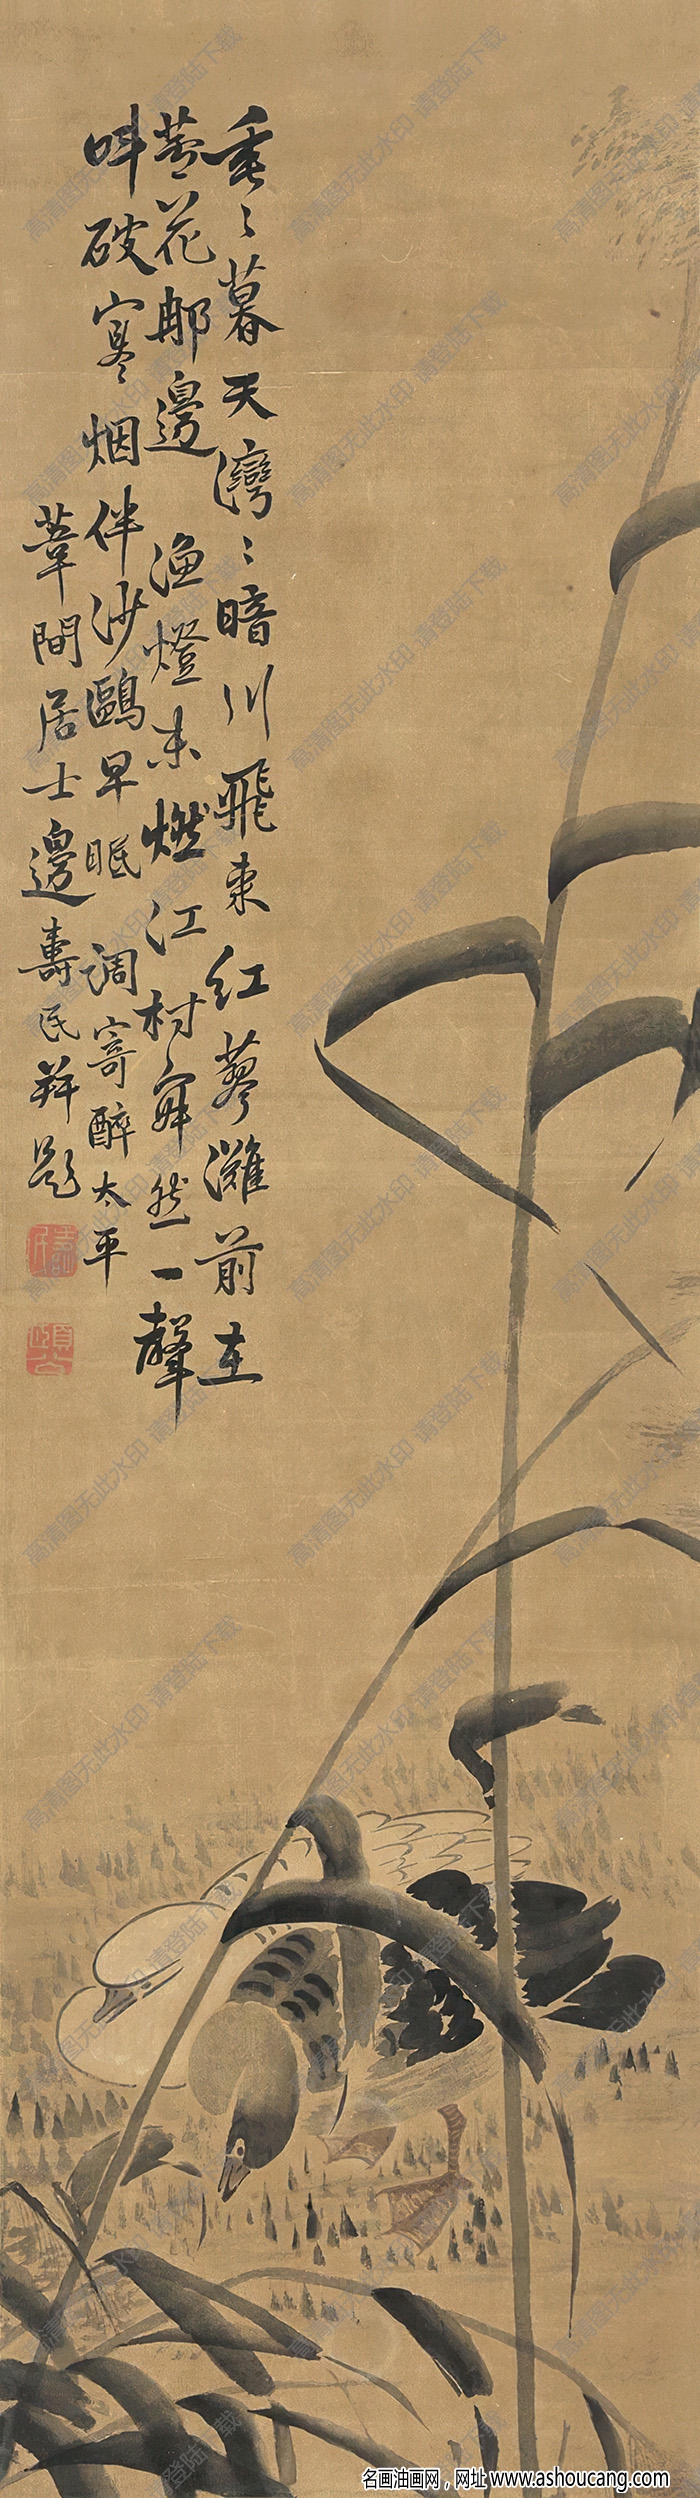 垂〻暮天灣〻暗川飛來紅蓼灘前在
蘆花那邊 漁燈未燃江村然一聲
叫破寒烟伴沙鷗早眠 調寄醉太平
葦間居士邊壽民并題
壽民
頤公
高清图无此水印 请登陆下载
名画油画网，网址 www.ashoucang.com